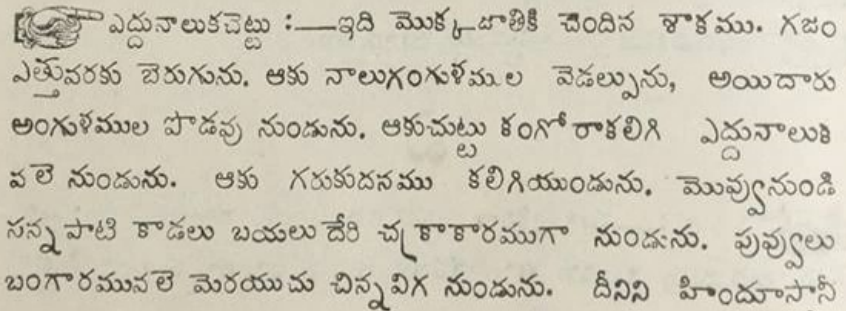 ఎద్దునాలుకచెట్టు :—ఇది మొక్కజాతికి చెందిన శాకము. గజం
ఎత్తువరకు బెరుగును. ఆకు నాలుగంగుళముల వెడల్పును, అయిదారు
అంగుళముల పొడవు నుండును. ఆకుచుట్టు కంగోరాకలిగి ఎద్దునాలుక
వలె నుండును. ఆకు గరుకుదనము కలిగియుండును. మొవ్వునుండి
సన్నపాటి కాడలు బయలుదేరి చక్రాకారముగా నుండును. పువ్వులు
బంగారమువలె మెరయుచు చిన్నవిగ నుండును. దీనిని హిందూసానీ